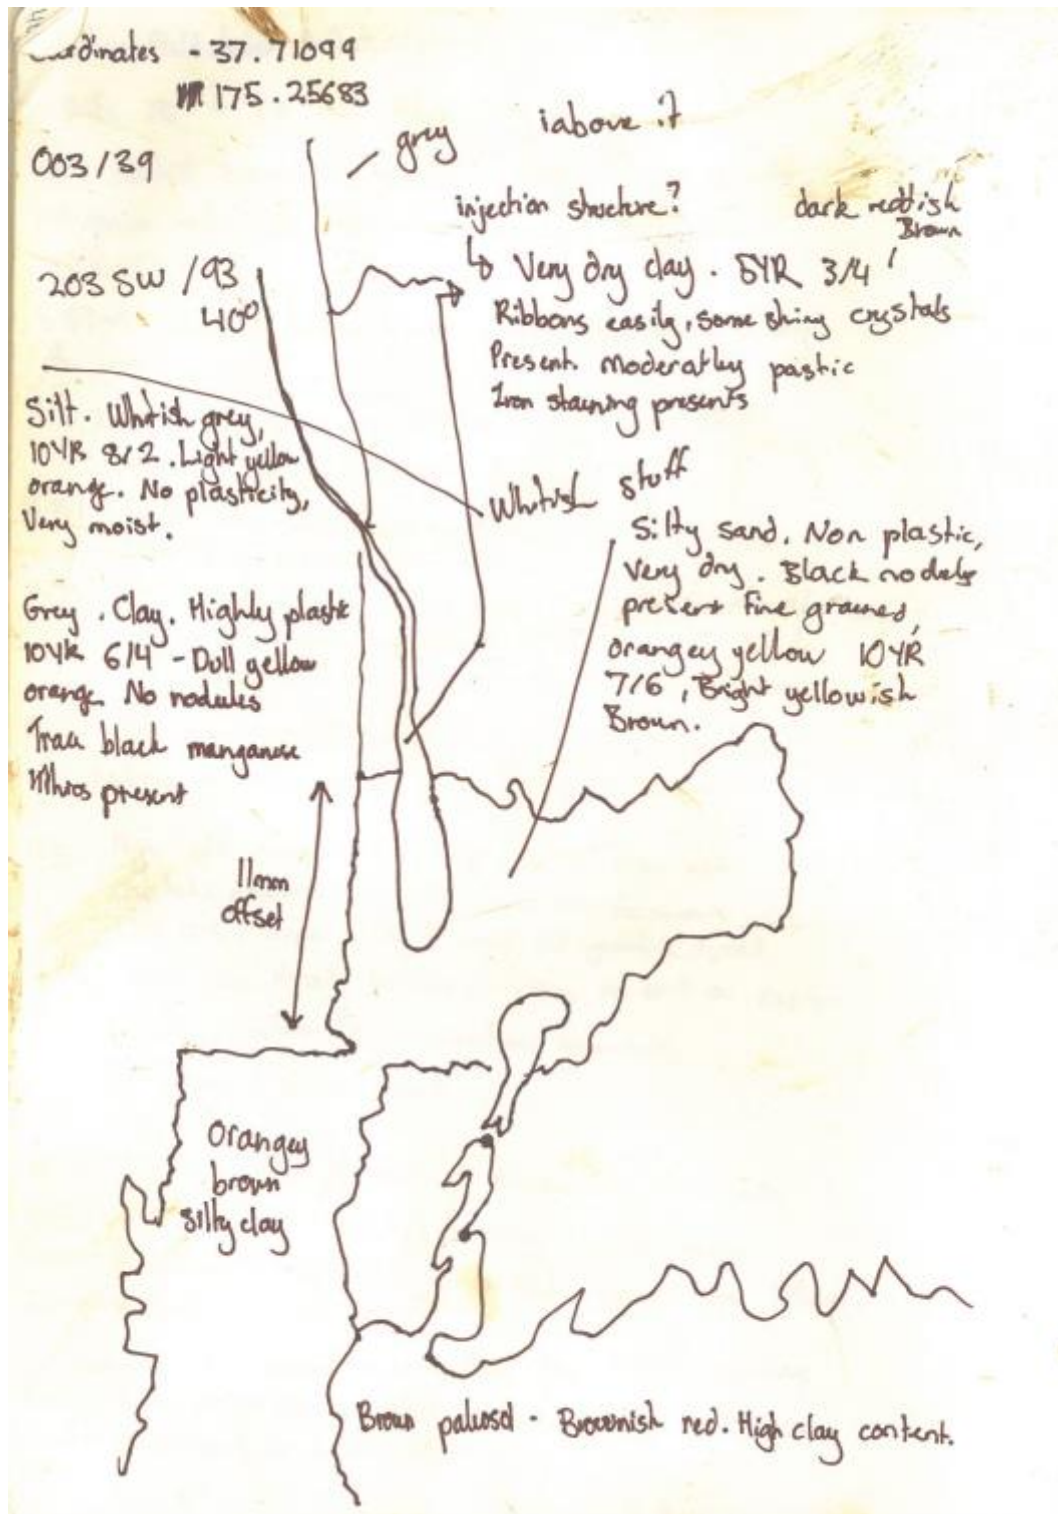 ordinates - 37.71099
175.25683
grey
iabove it
003/39
injection structure?
dark reddish
Brown
203 SW /93
40°
Very dry clay. 5YR 3/4
Ribbons easily, some shiny crystals
Present. Moderatley pastic
Iron staining presents
Silt. Whitish grey,
10YR 8/2. Light yellow
orange. No plasticity,
Very moist.
Whitish stuff
Silty sand. Non plastic,
Very dry. Black nodules
present fine grained,
orangey yellow 10YR
7/6, Bright yellowish
Brown.
Grey. Clay. Highly plastic
10YR 6/4 - Dull yellow
orange. No nodules
Trace black manganese
present
11mm
offset
Orangey
brown
silty clay
Brown paleosol - Brownish red. High clay content.